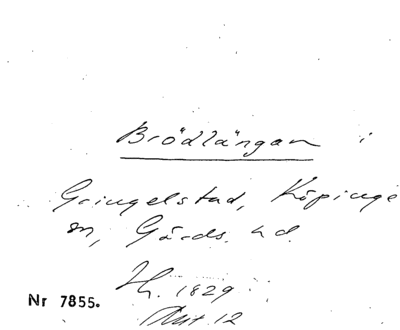 Brödlängan i
Gringelstad, Köpinge
sn, Gärds. hd.
1829
Nr 7855.
12